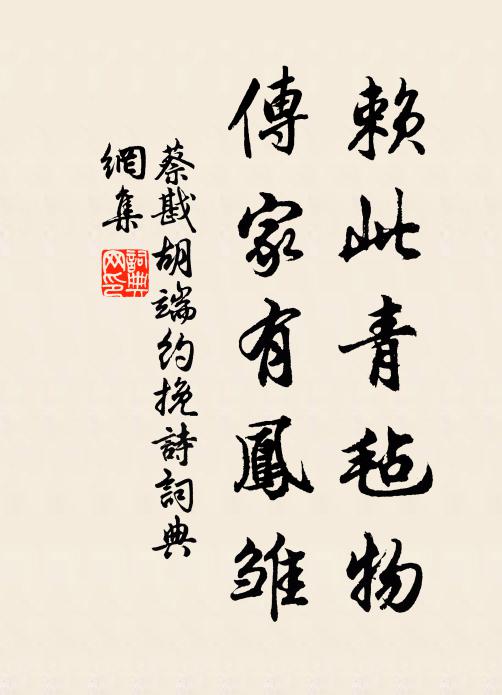 賴此青毡物
傳家有鳳雏
蔡戡胡端约挽詩詞典
網集
詞典
网印